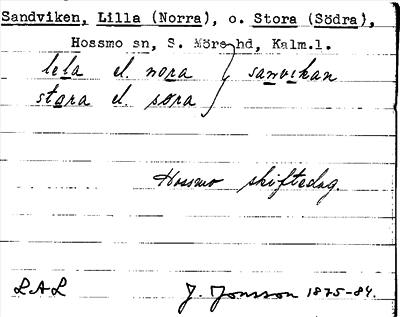 Sandviken, Lilla (Norra), o. Stora (Södra),
Hossmo sn, S. Möre hd, Kalm.l.
lela el. nora } sanvikan
stora el. söra
Hossmo skiftedag.
LAL J. Jonsson 1875-84.